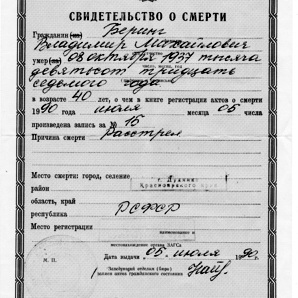 СВИДЕТЕЛЬСТВО О СМЕРТИ
Гражданин (ка) Беринг
Владимир Михайлович
умер (ла) 08 октября 1937 тысяча
девятьсот тридцать
седьмого года
в возрасте 40 лет, о чем в книге регистрации актов о смерти
1990 года июля месяца 05 числа
произведена запись за № 15
Причина смерти Расстрел
Место смерти: город, селение
район Красноярского края
область, край
республика РСФСР
Место регистрации
наименование и
местонахождение органа ЗАГСа
Дата выдачи „05" июля 1990г.
М. П.
Заведующий отделом (бюро)
записи актов гражданского состояния